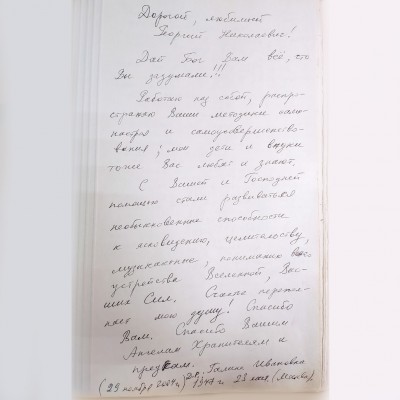 Дорогой, любимый
Георгий Николаевич!
Дай Бог Вам всё, что
Вы задумали!!!
Работаю над собой, распро-
страняю Ваши методики само-
настроя и самоусовершенство-
вания; мои дети и внуки
тоже Вас любят и знают.
С Вашей и Господней
помощью стали развиваться
необыкновенные способности
к ясновидению, целительству,
пониманию всего
устройства Вселенной, Выс-
ших Сил. Сильно
мою душу! Спасибо
Вам. Спасибо Вашим
Ангелам Хранителям и
предкам. Галина Ивановна
(29 ноября 2004 г.) 1947 г. 28 мая (Москва).